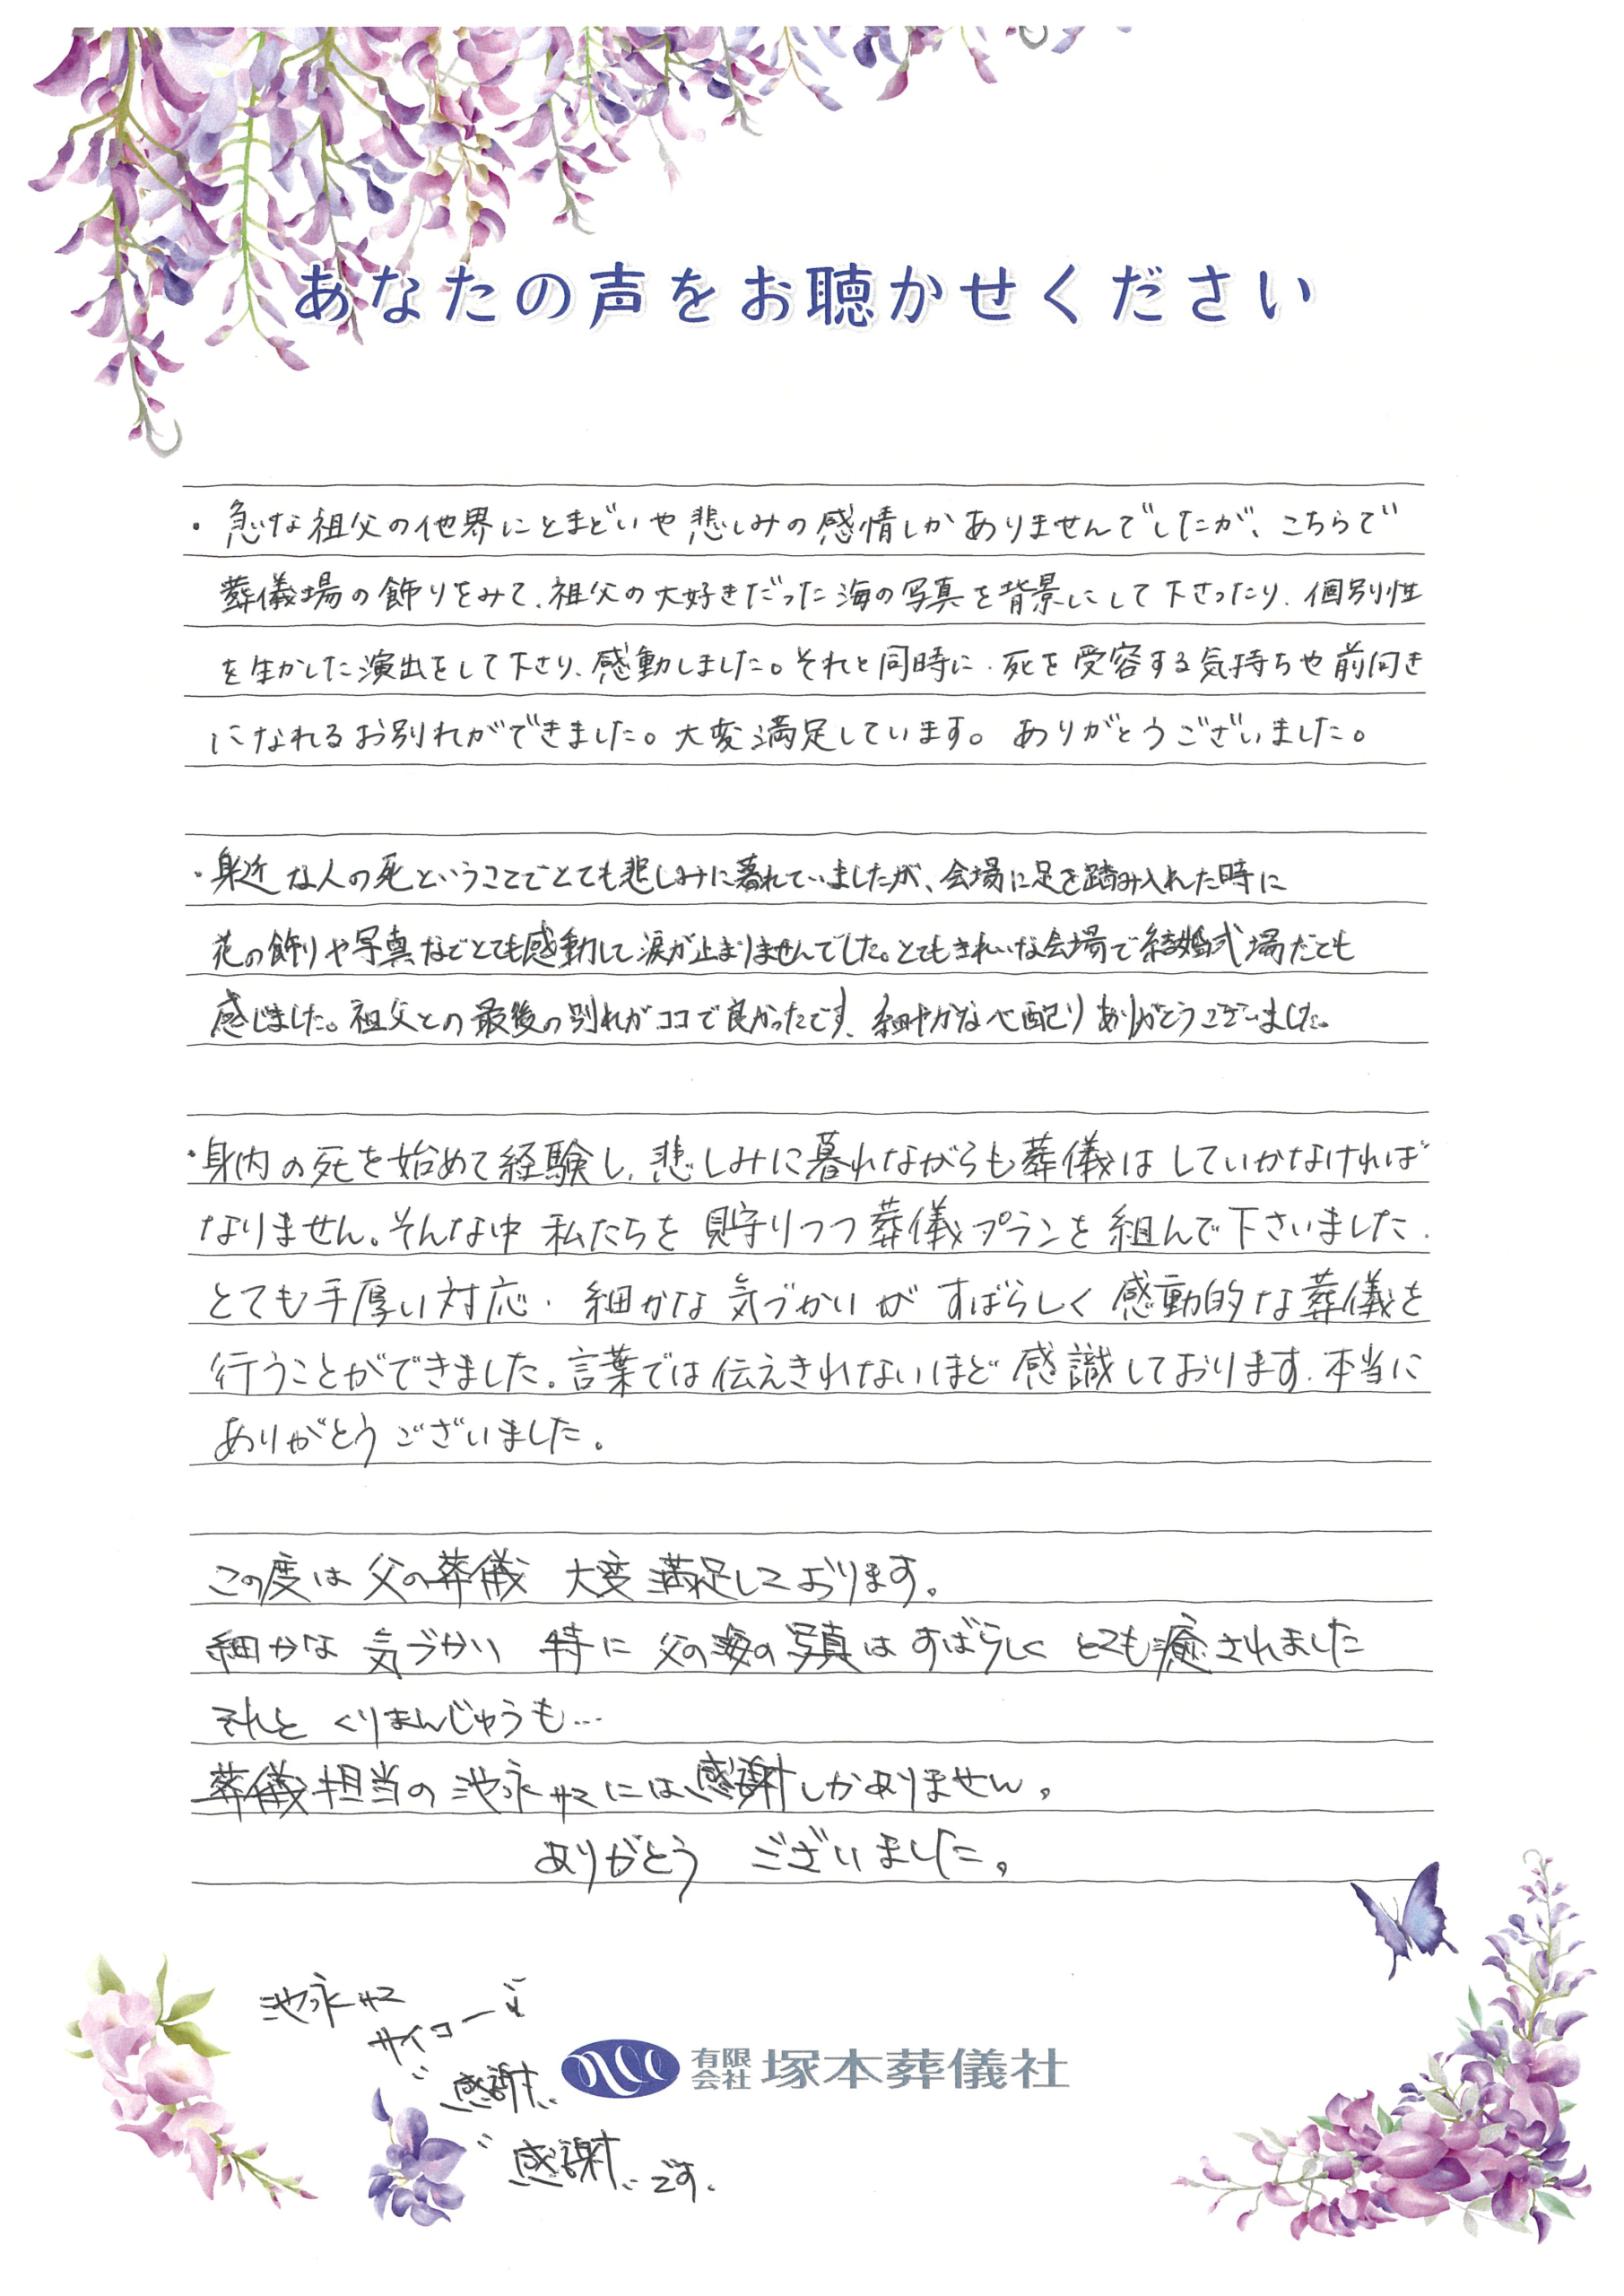 あなたの声をお聴かせください
・急な祖父の他界にとまどいや悲しみの感情しかありませんでしたが、こちらで
葬儀場の飾りをみて、祖父の大好きだった海の写真を背景にして下さったり、個別性
を生かした演出をして下さり、感動しました。それと同時に、死を受容する気持ちや前向き
になれるお別れができました。大変満足しています。ありがとうございました。
・身近な人の死ということでとても悲しみに暮れていましたが、会場に足を踏み入れた時に
花の飾りや写真などとても感動して涙が止まりませんでした。とてもきれいな会場で結婚式場だとも
感じました。祖父との最後の別れがココで良かったです、細やかな心配りありがとうございました。
・身内の死を始めて経験し、悲しみに暮れながらも葬儀はしていかなければ
なりません。そんな中 私たちを見守りつつ葬儀プランを組んで下さいました。
とても手厚い対応、細かな気づかいが すばらしく感動的な葬儀を
行うことができました。言葉では伝えきれないほど感識しております。本当に
ありがとうございました。
この度は 父の葬儀 大変満足しております。
細かな 気づかい 特に 父の海の写真は すばらしく とても癒されました
それと くりまんじゅうも…
葬儀担当の池永サマには、感謝しかありません。
ありがとう ございました。
池永サマ
サイコー
感謝
感謝です。
有限会社 塚本葬儀社